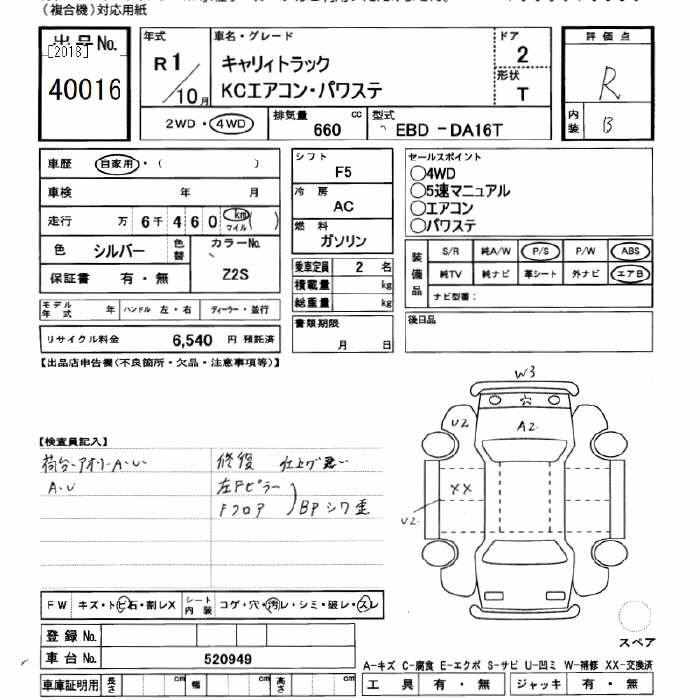 （複合機）対応用紙
出品No.
[2018]
40016
年式
R1/10月
車名・グレード
キャリィトラック
KCエアコン・パワステ
ドア
2
形状
T
評価点
R
内装
B
2WD・4WD
排気量
660 cc
型式
EBD -DA16T
車歴 自家用・（ ）
車検 年 月
走行 万 6千 4 6 0 km マイル ( )
色 シルバー 色替
カラーNo.
Z2S
保証書 有・無
モデル年式 年 ハンドル 左・右 ディーラー・並行
リサイクル料金 6,540 円 預託済
シフト
F5
冷房
AC
燃料
ガソリン
乗車定員 2 名
積載量 kg
総重量 kg
書類期限
月 日
セールスポイント
○4WD
○5速マニュアル
○エアコン
○パワステ
装備品
S/R 純A/W P/S P/W ABS
純TV 純ナビ 革シート 外ナビ エアB
ナビ型番：
後日品
【出品店申告欄（不良箇所・欠品・注意事項等）】
W3
穴
U2
A2
XX
U2
【検査員記入】
荷台・アオリ-A・U
A・U
修復 仕上げ悪い
左Fピラー
Fフロア
BPシワ歪
FW キズ・トビ石・割レX シート内装 コゲ・穴・汚レ・シミ・破レ・スレ
登録No.
車台No. 520949
車庫証明用 長さ cm 幅 cm 高さ cm
スペア
A-キズ C-腐食 E-エクボ S-サビ U-凹ミ W-補修 XX-交換済
工具 有・無 ジャッキ 有・無